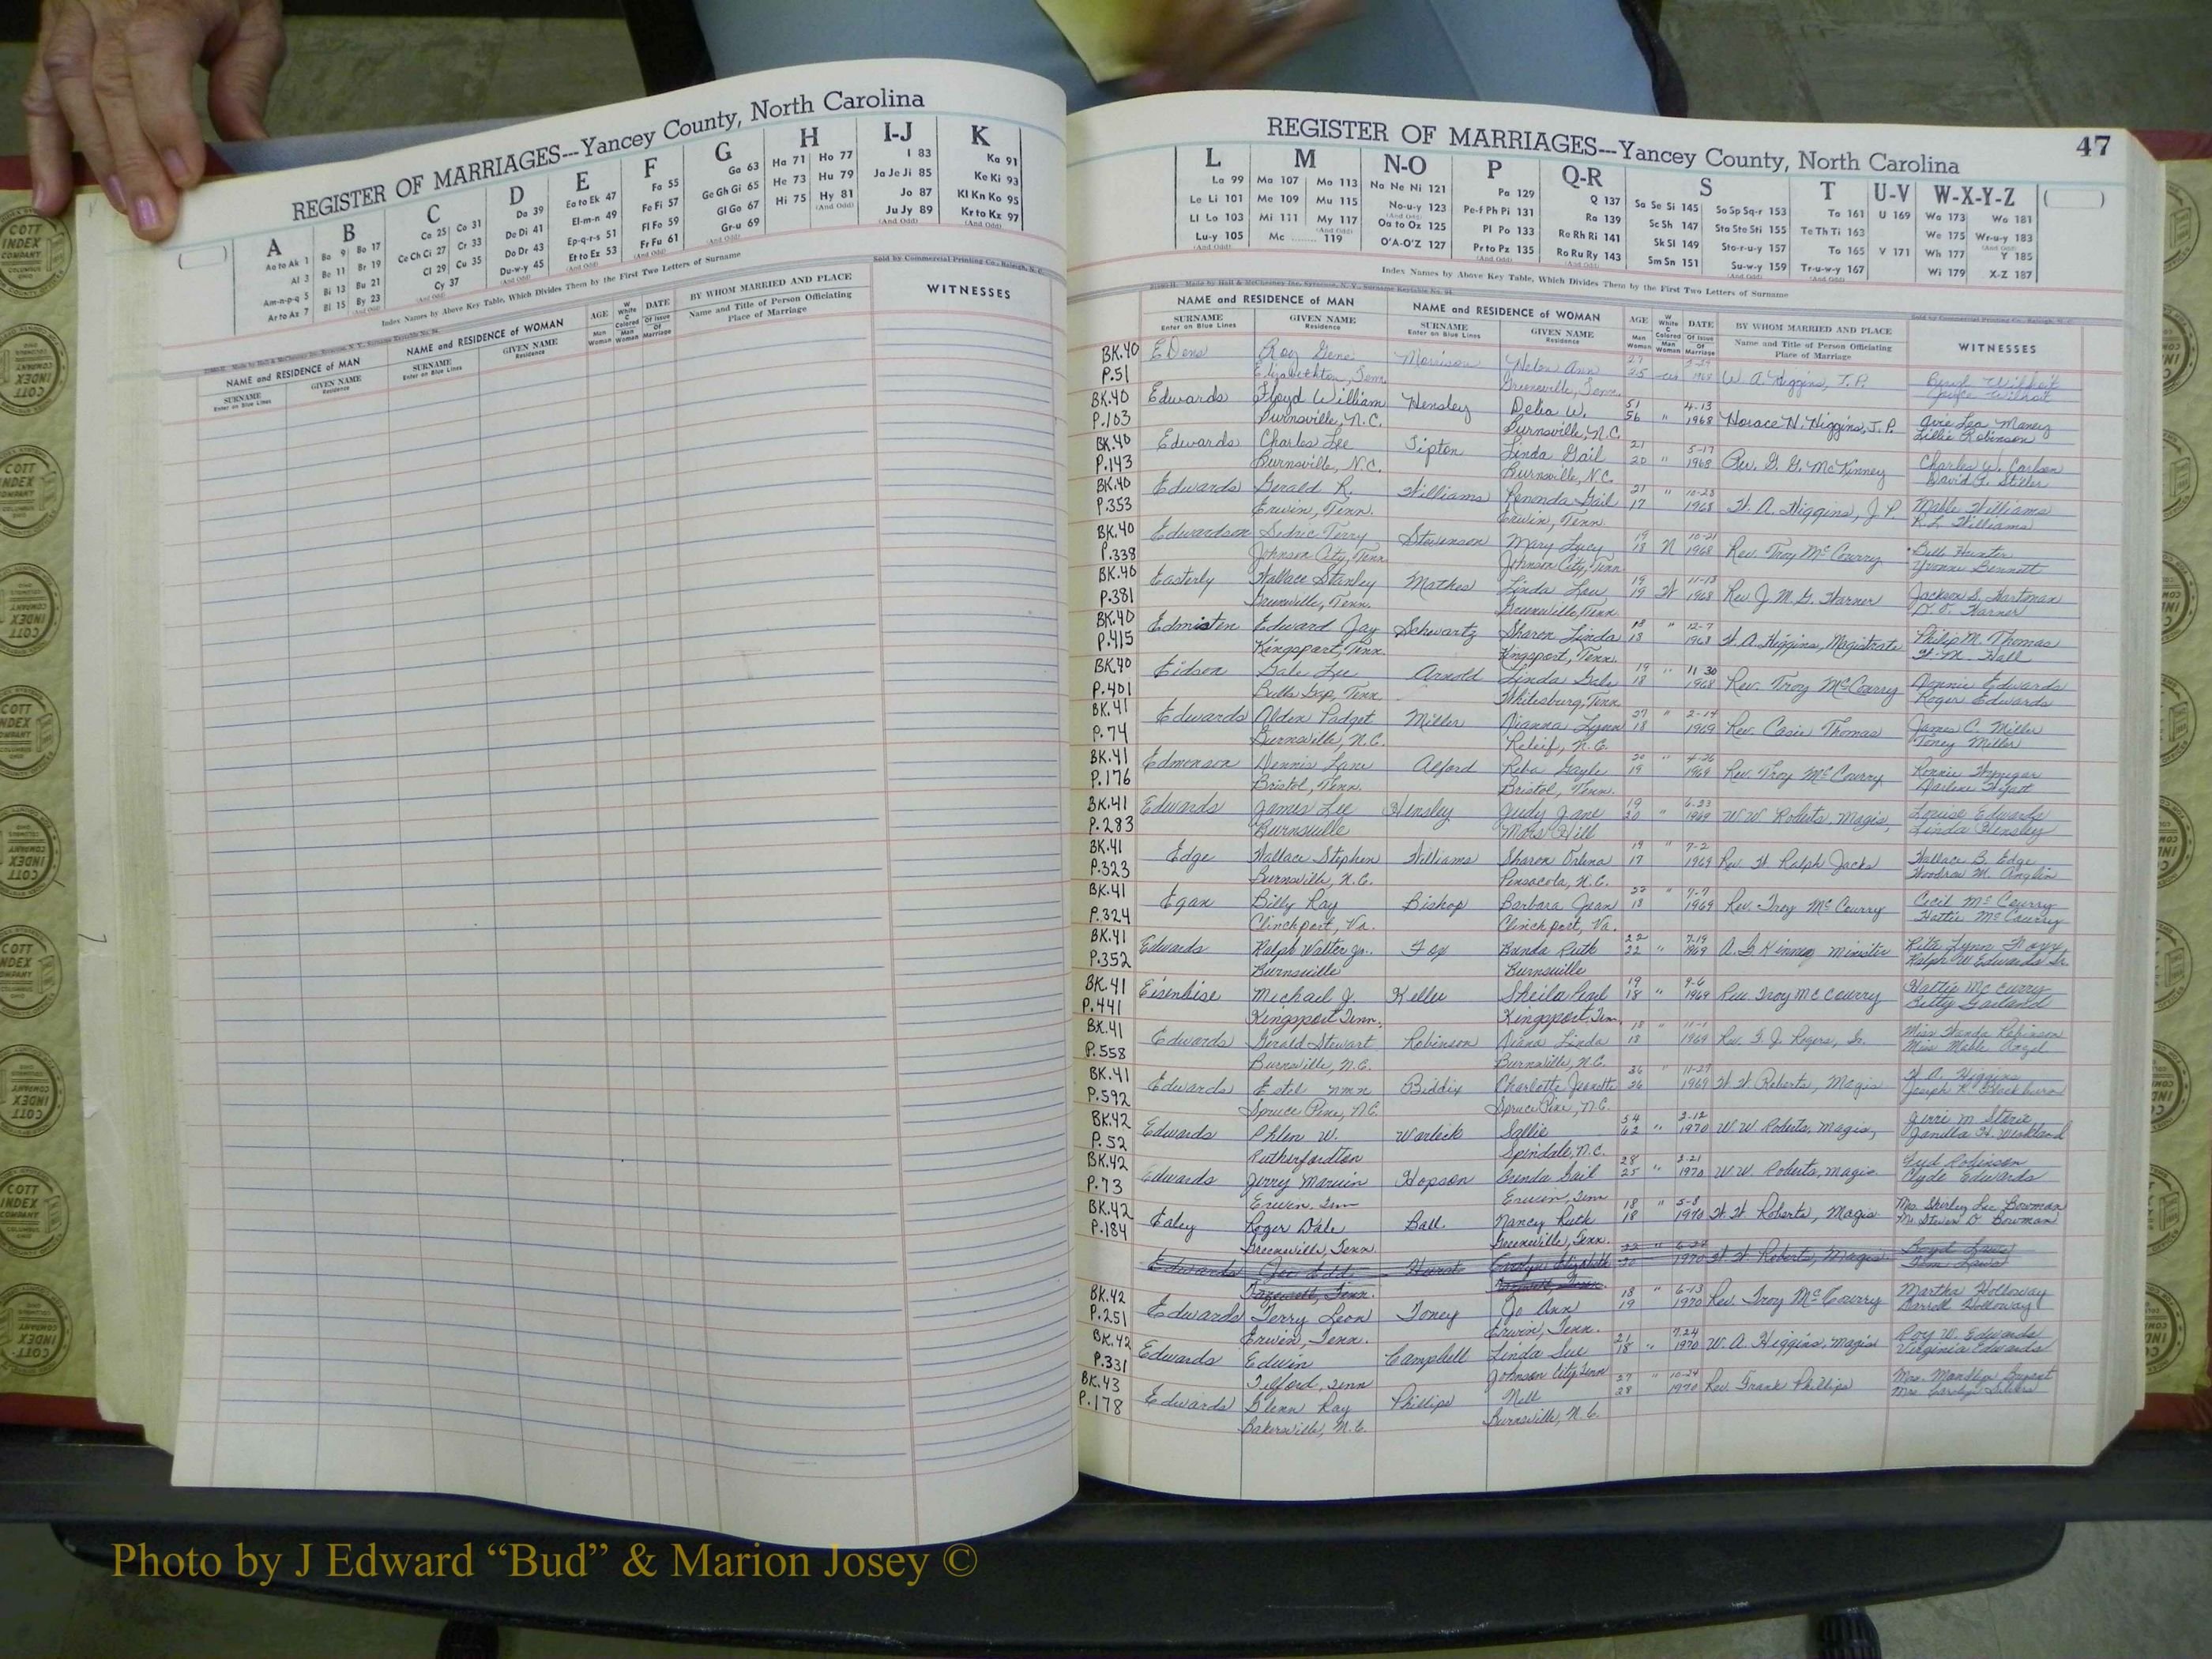 REGISTER OF MARRIAGES---Yancey County, North Carolina
A B C D E F G H I-J K
Aa to Ak 1 Ba 9 Bo 17 Ca 25 Co 31 Da 39 Ea to Ek 47 Fa 55 Ga 63 Ha 71 Ho 77 I 83 Ka 91
Al 3 Be 11 Br 19 Ce Ch Ci 27 Cr 33 De Di 41 El-m-n 49 Fe Fi 57 Ge Gh Gi 65 He 73 Hu 79 Ja Je Ji 85 Ke Ki 93
Am-n-p-q 5 Bi 13 Bu 21 Cl 29 Cu 35 Do Dr 43 Ep-q-r-s 51 Fl Fo 59 Gl Go 67 Hi 75 Hy 81 Jo 87 Kl Kn Ko 95
Ar to Az 7 Bl 15 By 23 Cy 37 Du-w-y 45 Et to Ez 53 Fr Fu 61 Gr-u 69 Ju Jy 89 Kr to Kz 97
Index Names by Above Key Table, Which Divides Them by the First Two Letters of Surname
Sold by Commercial Printing Co., Raleigh, N. C.
NAME and RESIDENCE of MAN NAME and RESIDENCE of WOMAN AGE W White C Colored DATE Of Issue BY WHOM MARRIED AND PLACE WITNESSES
SURNAME Enter on Blue Lines GIVEN NAME Residence SURNAME Enter on Blue Lines GIVEN NAME Residence Man Woman Man Woman Of Marriage Name and Title of Person Officiating Place of Marriage
REGISTER OF MARRIAGES---Yancey County, North Carolina 47
L M N-O P Q-R S T U-V W-X-Y-Z
La 99 Ma 107 Mo 113 Na Ne Ni 121 Pa 129 Q 137 Sa Se Si 145 So Sp Sq-r 153 Ta 161 U 169 Wa 173 Wo 181
Le Li 101 Me 109 Mu 115 No-u-y 123 Pe-f Ph Pi 131 Ra 139 Sc Sh 147 Sta Ste Sti 155 Te Th Ti 163 We 175 Wr-u-y 183
Ll Lo 103 Mi 111 My 117 Oa to Oz 125 Pl Po 133 Re Rh Ri 141 Sk Sl 149 Sto-r-u-y 157 To 165 V 171 Wh 177 Y 185
Lu-y 105 Mc 119 O'A-O'Z 127 Pr to Pz 135 Ro Ru Ry 143 Sm Sn 151 Su-w-y 159 Tr-u-w-y 167 Wi 179 X-Z 187
Index Names by Above Key Table, Which Divides Them by the First Two Letters of Surname
NAME and RESIDENCE of MAN NAME and RESIDENCE of WOMAN AGE W White C Colored DATE Of Issue BY WHOM MARRIED AND PLACE WITNESSES
SURNAME Enter on Blue Lines GIVEN NAME Residence SURNAME Enter on Blue Lines GIVEN NAME Residence Man Woman Man Woman Of Marriage Name and Title of Person Officiating Place of Marriage
BK.40 EDens Roy Gene Morrison Helen Ann 27
P.51 Elizabethton, Tenn. Greeneville, Tenn. 25 1968 W. A. Higgins, J. P.
BK.40 Edwards Floyd William Hensley Delia W. 51 4-13 Avie Lea Maney
P.103 Burnsville, N.C. Burnsville, N.C. 56 " 1968 Horace H. Higgins, J. P. Lillie Robinson
BK.40 Edwards Charles Lee Tipton Linda Gail 21 5-17 Charles W. Carlson
P.143 Burnsville, N.C. Burnsville, N.C. 20 " 1968 Rev. G. G. McKinney David L. Stiller
BK.40 Edwards Gerald R. Williams Renonda Gail 21 " 10-23 Mable Williams
P.353 Erwin, Tenn. Erwin, Tenn. 17 1968 W. A. Higgins, J. P. R. L. Williams
BK.40 Edwardson Sedric Terry Stevenson Mary Lucy 19 10-21 Hunter
P.338 Johnson City, Tenn. Johnson City, Tenn. 18 N 1968 Rev. Troy McCourry Yvonne Bennett
BK.40 Easterly Wallace Stanley Mathes Linda Lou 19 11-13 Jackson S. Hartman
P.381 Greeneville, Tenn. Greeneville, Tenn. 19 W 1968 Rev J. M. G. Warner Warner
BK.40 Edmisten Edward Jay Schwartz Sharon Linda 18 " 12-7 Philip M. Thomas
P.415 Kingsport, Tenn. Kingsport, Tenn. 18 1968 W. A. Higgins, Magistrate Hall
BK.40 Eidson Dale Lee Arnold Linda Gale 19 " 11-30 Edwards
P.401 Bulls Gap, Tenn. Whitesburg, Tenn. 18 1968 Rev. Troy McCourry Roger Edwards
BK.41 Edwards Alden Padget Miller Dianna Lynn " 2-14 James C. Miller
P.74 Burnsville, N.C. Releif, N.C. 18 1969 Rev. Casie Thomas Toney Miller
BK.41 Edmonson Dennis Lane Alford Reba Gayle 20 " 4-26 Ronnie
P.176 Bristol, Tenn. Bristol, Tenn. 19 1969 Rev. Troy McCourry Darlene
BK.41 Edwards James Lee Hensley Judy Jane 19 6-23 Louise Edwards
P.283 Burnsville Mars Hill 20 " 1969 W W. Roberts, Magis, Linda Hensley
BK.41 Edge Wallace Stephen Williams Sharon 19 " 7-2 Wallace B. Edge
P.323 Burnsville, N.C. Pensacola, N.C. 17 1969 Rev. W. Ralph Jacks Woodrow M. Anglin
BK.41 Egan Billy Ray Bishop Barbara Jean 22 " 7-7 Cecil McCourry
P.324 Clinchport, Va. Clinchport, Va. 18 1969 Rev. Troy McCourry Hattie McCourry
BK.41 Edwards Ralph Walter Jr. Fox Brenda Ruth 22 7-19 Rita Lynn
P.352 Burnsville Burnsville 22 " 1969 A. G. Kinney minister Ralph W Edwards Sr.
BK.41 Eisenbise Michael J. Keller Sheila Pearl 19 9-6 Hattie McCurry
P.441 Kingsport Tenn. Kingsport Tenn. 18 " 1969 Rev Troy McCourry Betty Garland
BK.41 Edwards Gerald Stewart Robinson Diana Linda 18 " 11-1 Miss Wanda Robinson
P.558 Burnsville, N.C. Burnsville, N.C. 18 1969 Rev. F. J. Rogers, Sr. Miss Mable Angel
BK.41 Edwards Estel nmn Biddix Charlotte Jeanette 36 " 11-27 W. A. Higgins
P.592 Spruce Pine, N.C. Spruce Pine, N.C. 26 1969 W. W. Roberts, Magis Joseph R. Blackburn
BK.42 Edwards Phlen W. Warlick Sallie 54 2-12
P.52 Rutherfordton Spindale, N.C. 62 " 1970 W W Roberts, Magis,
BK.42 Edwards Jerry Marvin Hopson Brenda Gail 28 2-21 Robinson
P.73 Erwin, Tenn Erwin, Tenn 25 " 1970 W. W. Roberts, Magis Clyde Edwards
BK.42 Ealey Roger Dale Ball Nancy Ruth 18 " 5-8 Mrs. Shirley Lee Bowman
P.184 Greeneville, Tenn. Greeneville, Tenn. 18 1970 W. W. Roberts, Magis Mr. Steven D. Bowman
Edwards Joe Edd Hurst Carolyn Elizabeth 22 "
Tazewell, Tenn. Tazewell, Tenn. 20 1970 W. W. Roberts, Magis
BK.42 Edwards Terry Leon Toney Jo Ann 18 " 6-13 Martha Holloway
P.251 Erwin, Tenn. Erwin, Tenn. 19 1970 Rev. Troy McCourry Darrell Holloway
BK.42 Edwards Edwin Campbell Linda Sue 21 7-24 Roy W. Edwards
P.331 Telford, Tenn Johnson City, Tenn 18 " 1970 W. A. Higgins, Magis Virginia Edwards
BK.43 Edwards Glenn Ray Phillips Nell 27 " 10-24
P.178 Bakersville, N.C. Burnsville, N.C. 28 1970 Rev. Frank Phillips
Photo by J Edward “Bud” & Marion Josey ©